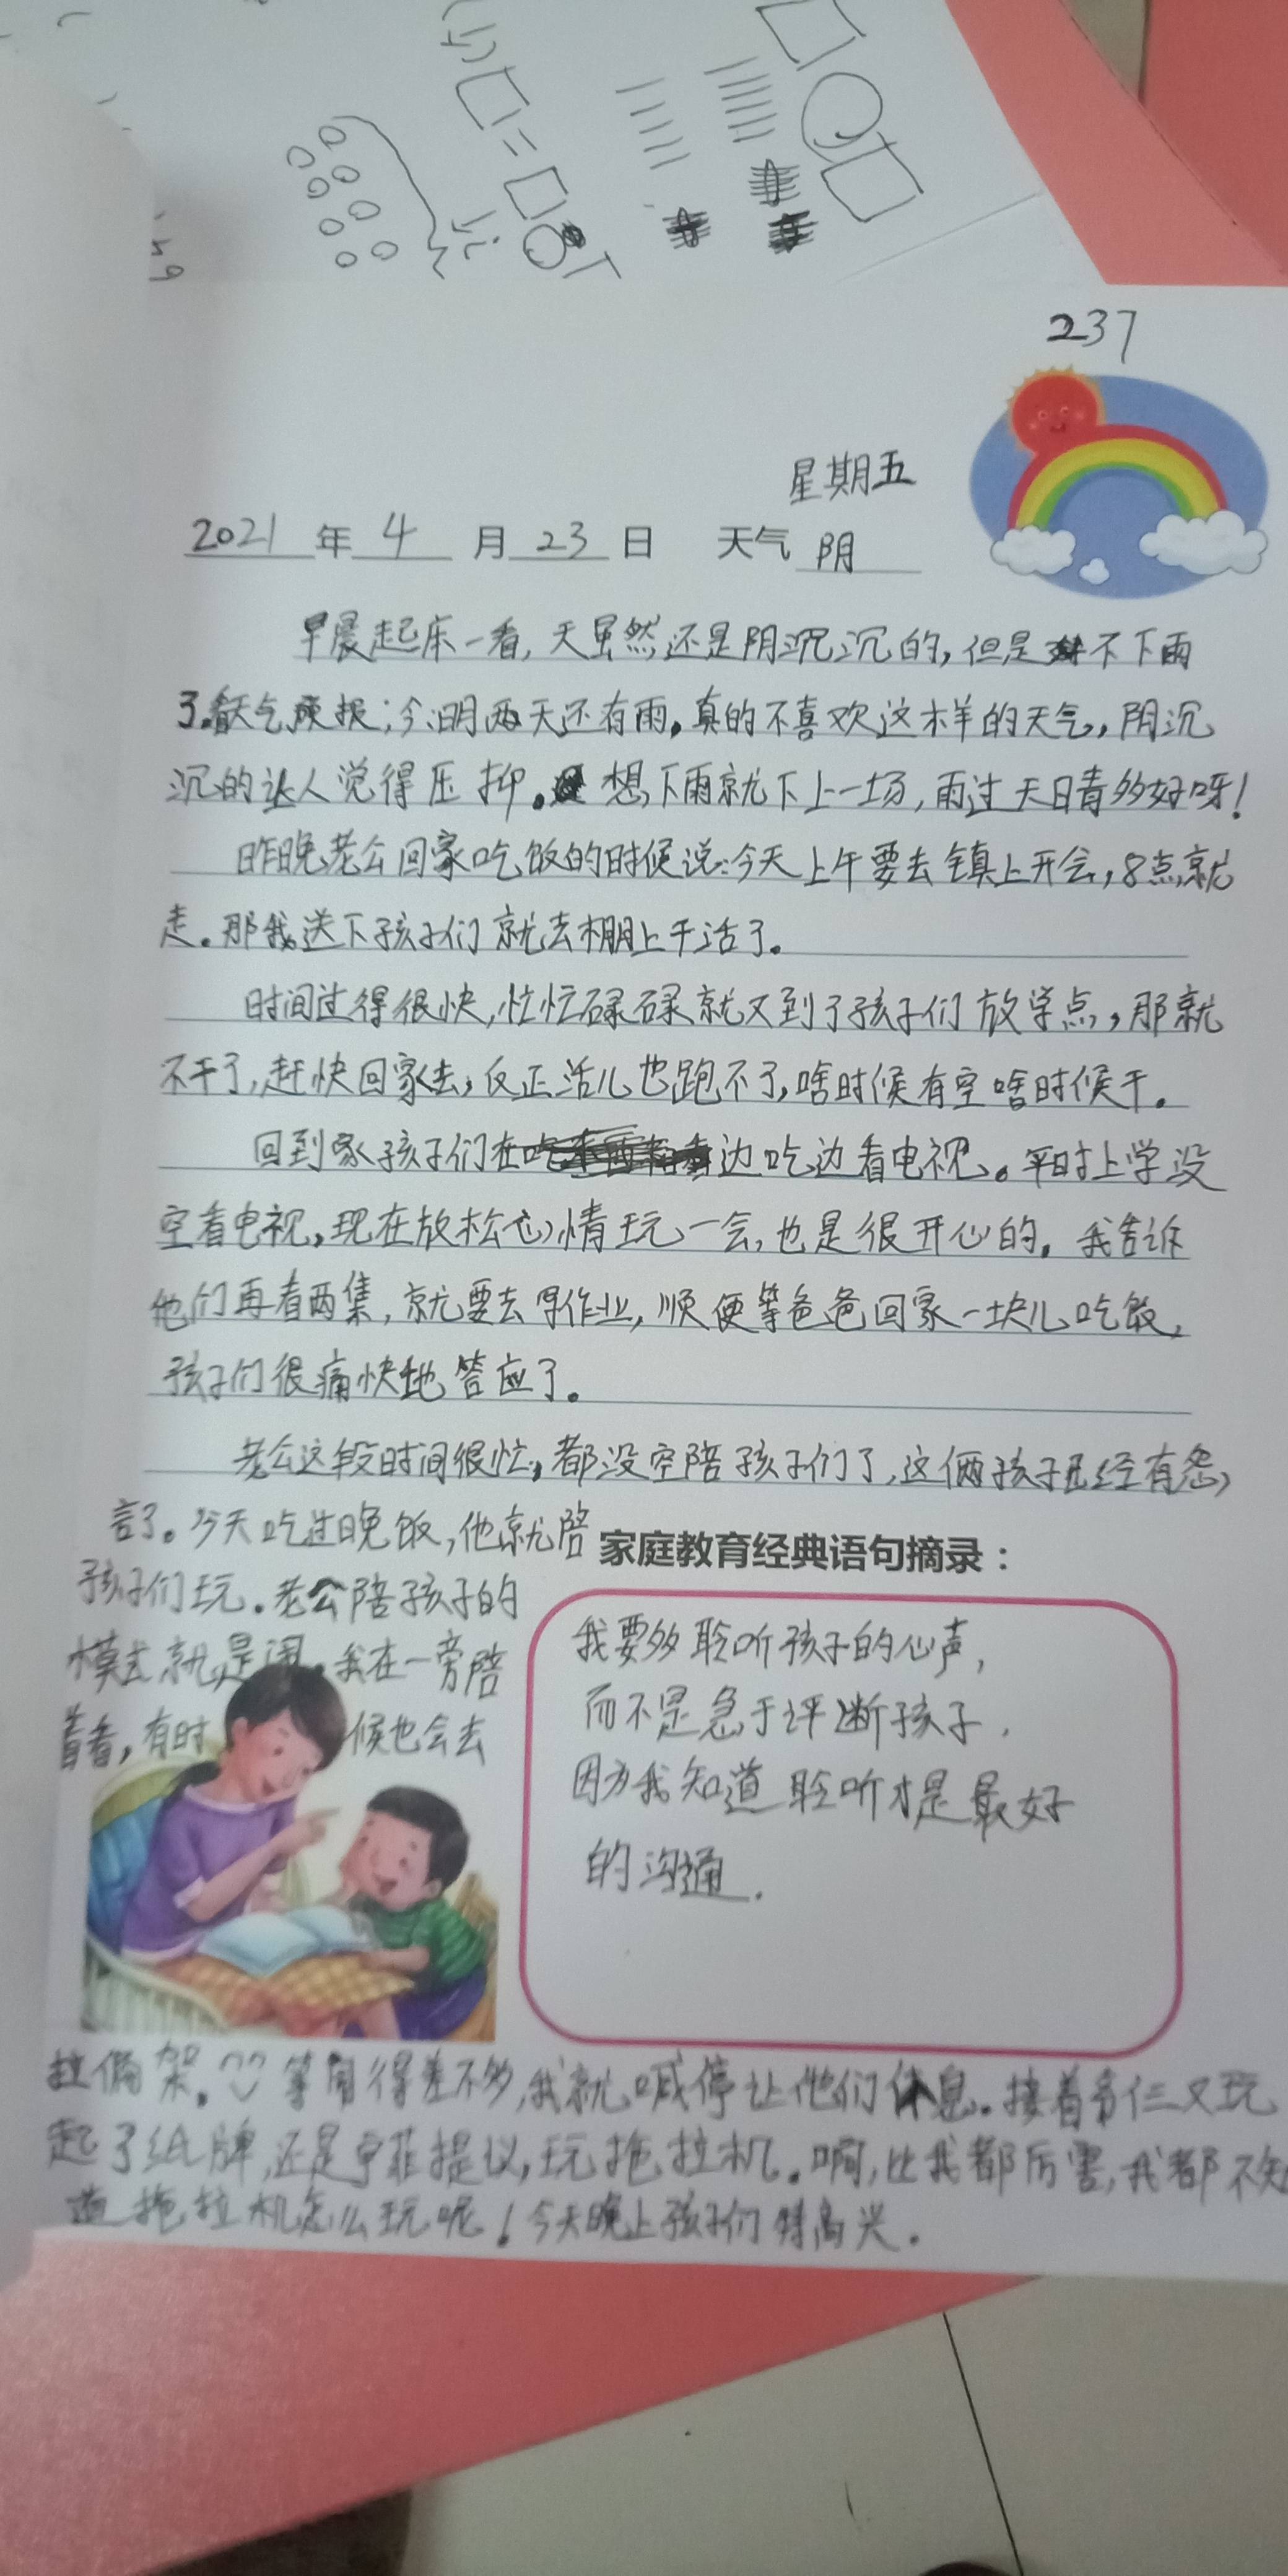 237
星期五
2021年4月23日 天气 阴
早晨起床一看,天虽然还是阴沉沉的,但是不下雨
了。看天气预报:今明两天还有雨。真的不喜欢这样的天气,阴沉
沉的让人觉得压抑。想下雨就下上一场,雨过天晴多好呀!
昨晚老公回家吃饭的时候说:今天上午要去镇上开会,8点就
走。那我送下孩子们就去棚上干活了。
时间过得很快,忙忙碌碌就又到了孩子们放学点,那就
不干了,赶快回家去,反正活儿也跑不了,啥时候有空啥时候干。
回到家孩子们在边吃边看电视。平时上学没
空看电视,现在放松心情玩一会,也是很开心的。我告诉
他们再看两集,就要去写作业,顺便等爸爸回家一块儿吃饭,
孩子们很痛快地答应了。
老公这段时间很忙,都没空陪孩子们了,这俩孩子已经有怨
言了。今天吃过晚饭,他就陪
孩子们玩。老公陪孩子的
模式就是闹。我在一旁陪
着看,有时候也会去
家庭教育经典语句摘录:
我要多聆听孩子的心声,
而不是急于评断孩子.
因为我知道聆听才是最好
的沟通.
拉偏架。等闹得差不多,我就喊停让他们休息。接着爷仨又玩
起了纸牌,还是宁菲提议,玩拖拉机。啊,比我都厉害,我都不知
道拖拉机怎么玩呢!今天晚上孩子们特高兴.